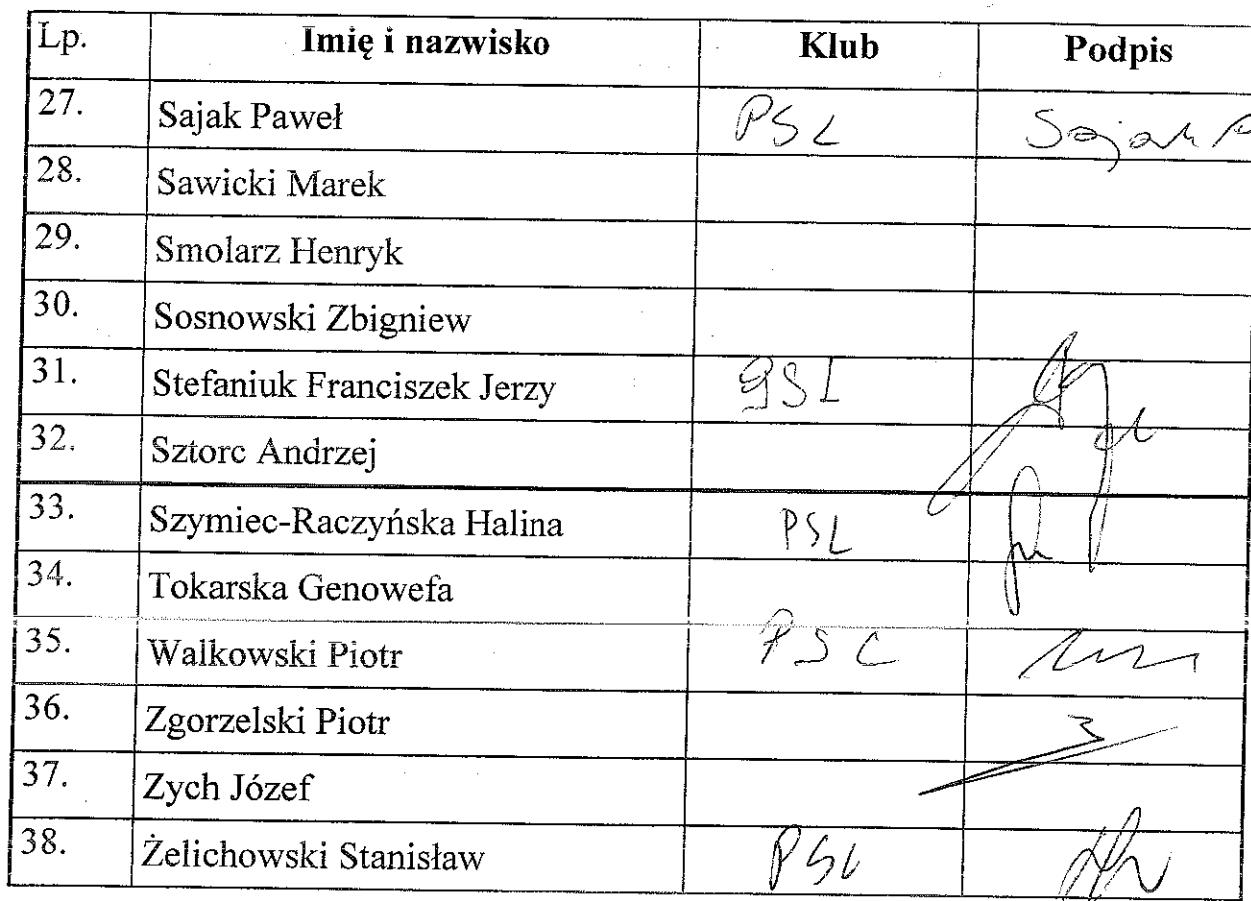 Lp. Imię i nazwisko Klub Podpis
27. Sajak Paweł PSL Sajak P
28. Sawicki Marek
29. Smolarz Henryk
30. Sosnowski Zbigniew
31. Stefaniuk Franciszek Jerzy PSL
32. Sztorc Andrzej
33. Szymiec-Raczyńska Halina PSL
34. Tokarska Genowefa
35. Walkowski Piotr PSL
36. Zgorzelski Piotr
37. Zych Józef
38. Żelichowski Stanisław PSL